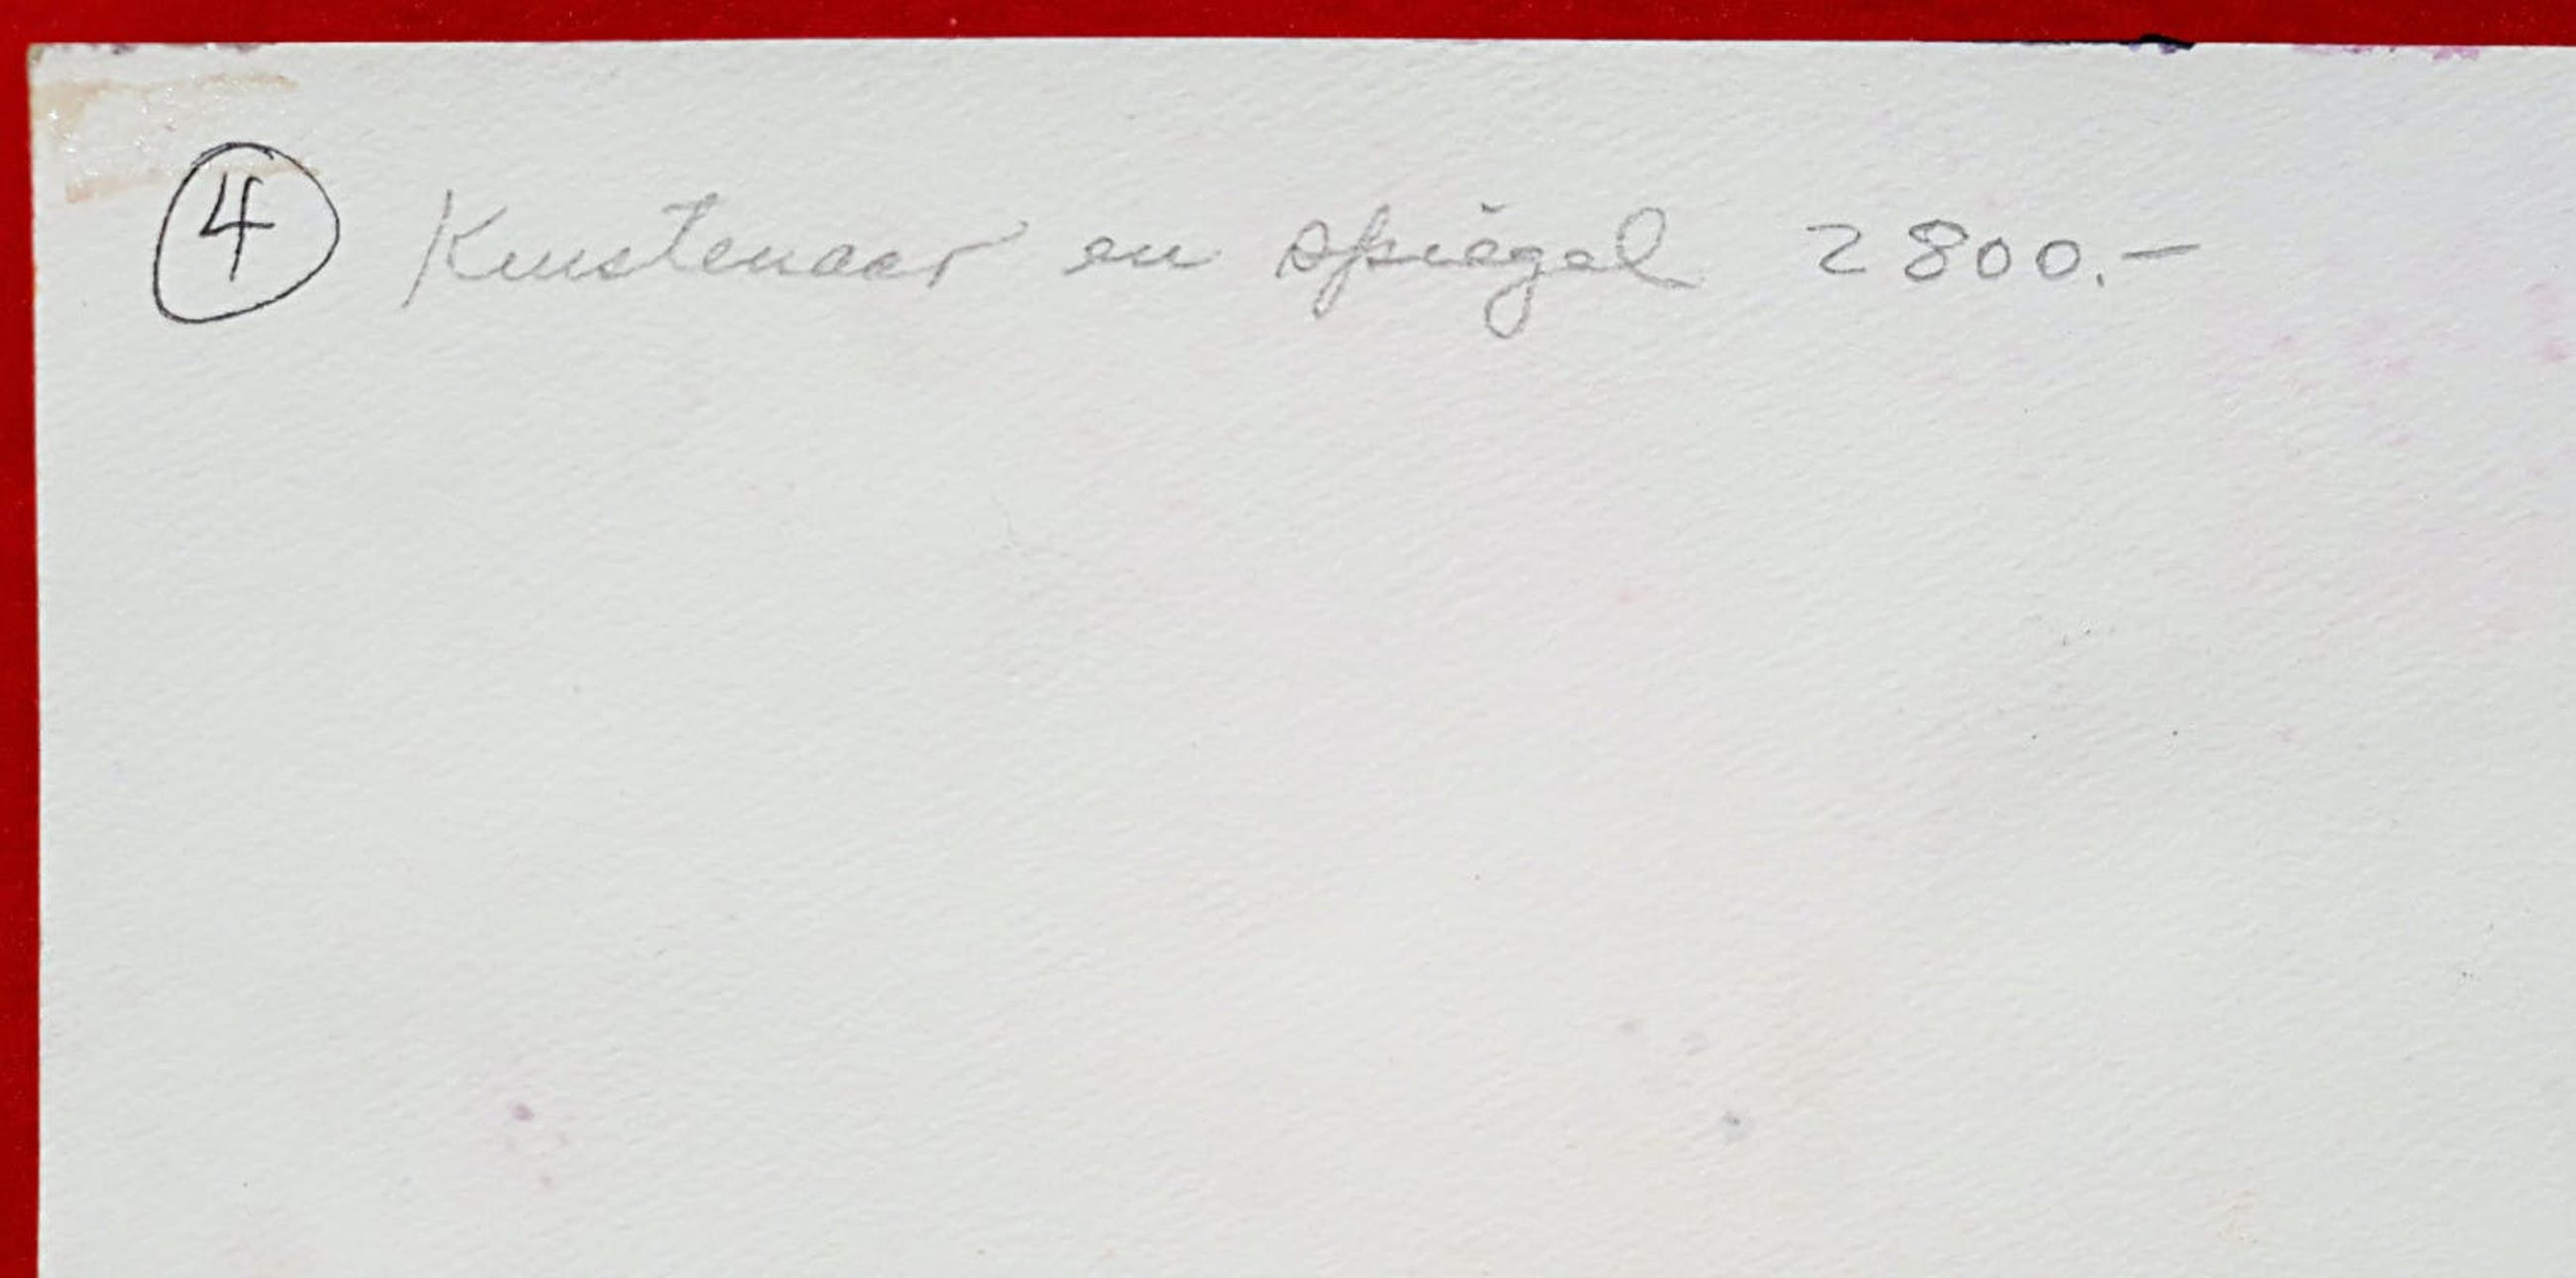 4 Kunstenaar en spiegel 2800.-